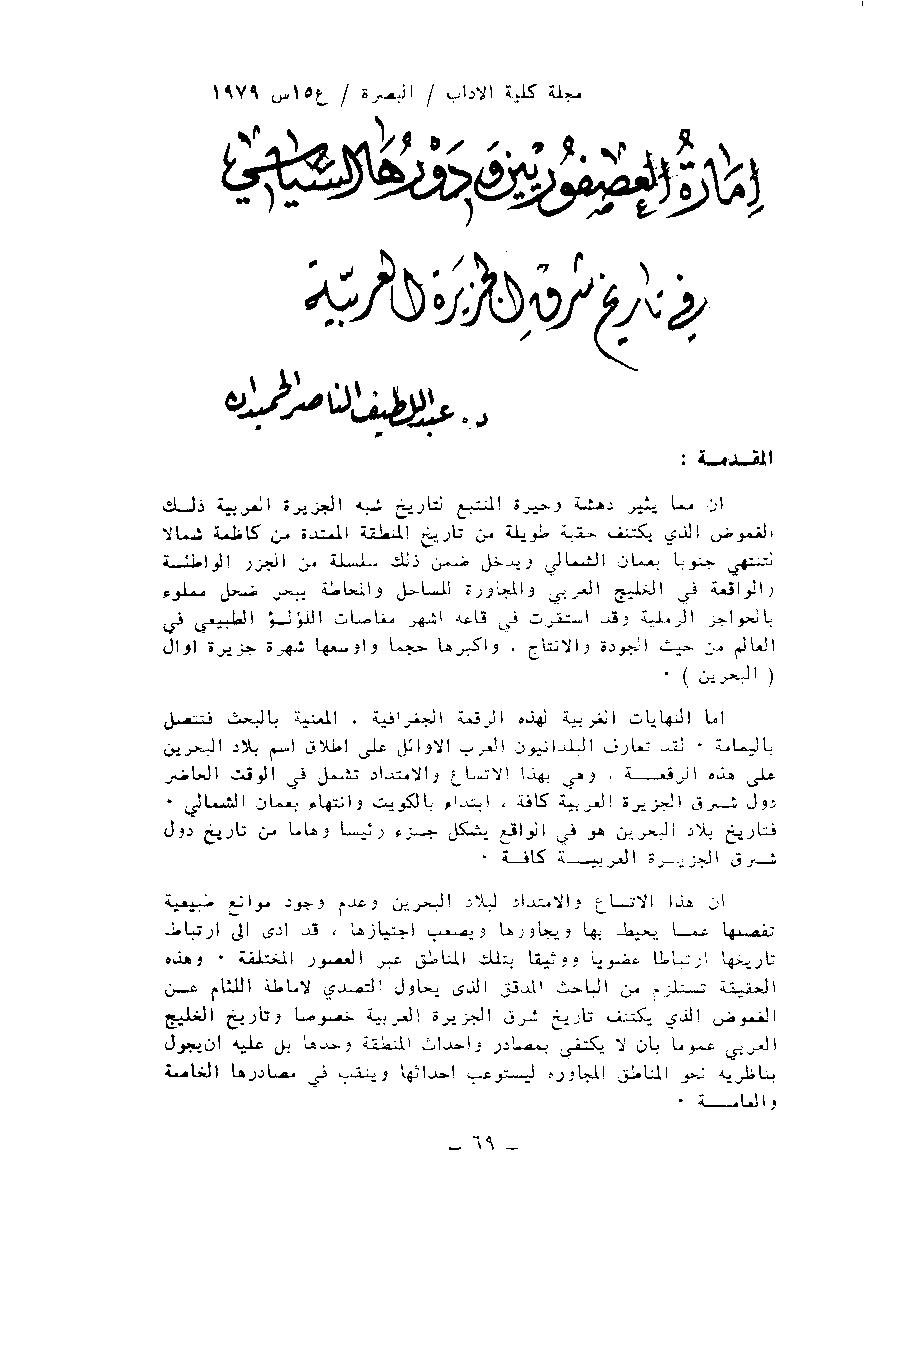 مجلة كلية الاداب / البصرة / ع١٥س ١٩٧٩
إمارة العصفوريين ودورها السياسي
في تاريخ شرق الجزيرة العربية
د. عبد اللطيف الناصر الحميدان
المقدمــة :
ان مما يثير دهشة وحيرة المتتبع لتاريخ شبه الجزيرة العربية ذلـك
الغموض الذي يكتنف حقبة طويلة من تاريخ المنطقة الممتدة من كاظمة شمالا
لتنتهي جنوبا بعمان الشمالي ويدخل ضمن ذلك سلسلة من الجزر الواطئـة
والواقعة في الخليج العربي والمجاورة للساحل والمحاطة ببحر ضحل مملوء
بالحواجز الرملية وقد استقرت في قاعه اشهر مغاصات اللؤلـؤ الطبيعي في
العالم من حيث الجودة والانتاج . واكبرها حجما واوسعها شهرة جزيرة اوال
( البحرين ) ٠
اما النهايات الغربية لهذه الرقعة الجغرافية . المعنية بالبحث فتتصل
باليمامة ٠ لقد تعارف البلدانيون العرب الاوائل على اطلاق اسم بلاد البحرين
على هذه الرقعــة . وهي بهذا الاتساع والامتداد تشمل في الوقت الحاضر
دول شـرق الجزيرة العربية كافة ، ابتداء بالكويت وانتهاء بعمان الشمالي ٠
فتاريخ بلاد البحرين هو في الواقع يشكل جـزء رئيسا وهاما من تاريخ دول
شــرق الجزيــرة العربيـــة كافــة ٠
ان هذا الاتـساع والامتداد لبلاد البحرين وعدم وجود موانع طبيعية
تفصـلها عمــا يحيط بها ويجاورها ويصعب اجتيازها ، قد ادى الى ارتباط
تاريخها ارتباطا عضويا ووثيقا بتلك المناطق عبر العصور المختلفة ٠ وهذه
الحقيقة تستلزم من الباحث المدقق الذى يحاول التصدي لاماطة اللثام عــن
الغموض الذي يكتنف تاريخ شرق الجزيرة العربية خصوصا وتاريخ الخليج
العربي عموما بان لا يكتفي بمصادر واحداث المنطقة وحدها بل عليه انيجول
بناظريه نحو المناطق المجاوره ليستوعب احداثها وينقب في مصادرها الخاصة
والعامـــة ٠
ـ ٦٩ ـ